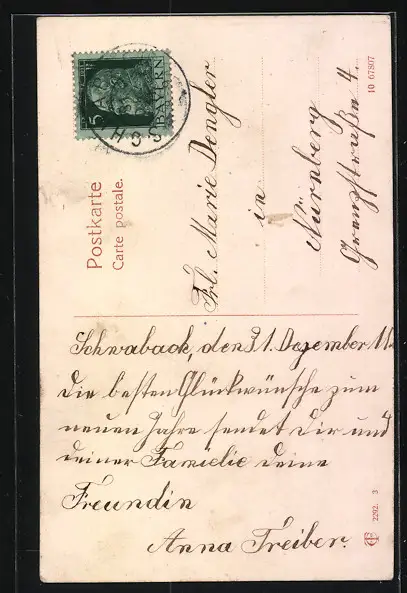 Postkarte
Carte postale.
5
BAYERN
SCH
Frl. Marie Dengler
in
Nürnberg
Grenzstraße 4.
10 67807
Schwabach, den 31. Dezember 11.
Die besten Glückwünsche zum
neuen Jahre sendet Dir und
deiner Famielie deine
Freundin
Anna Treiber.
2292. 3